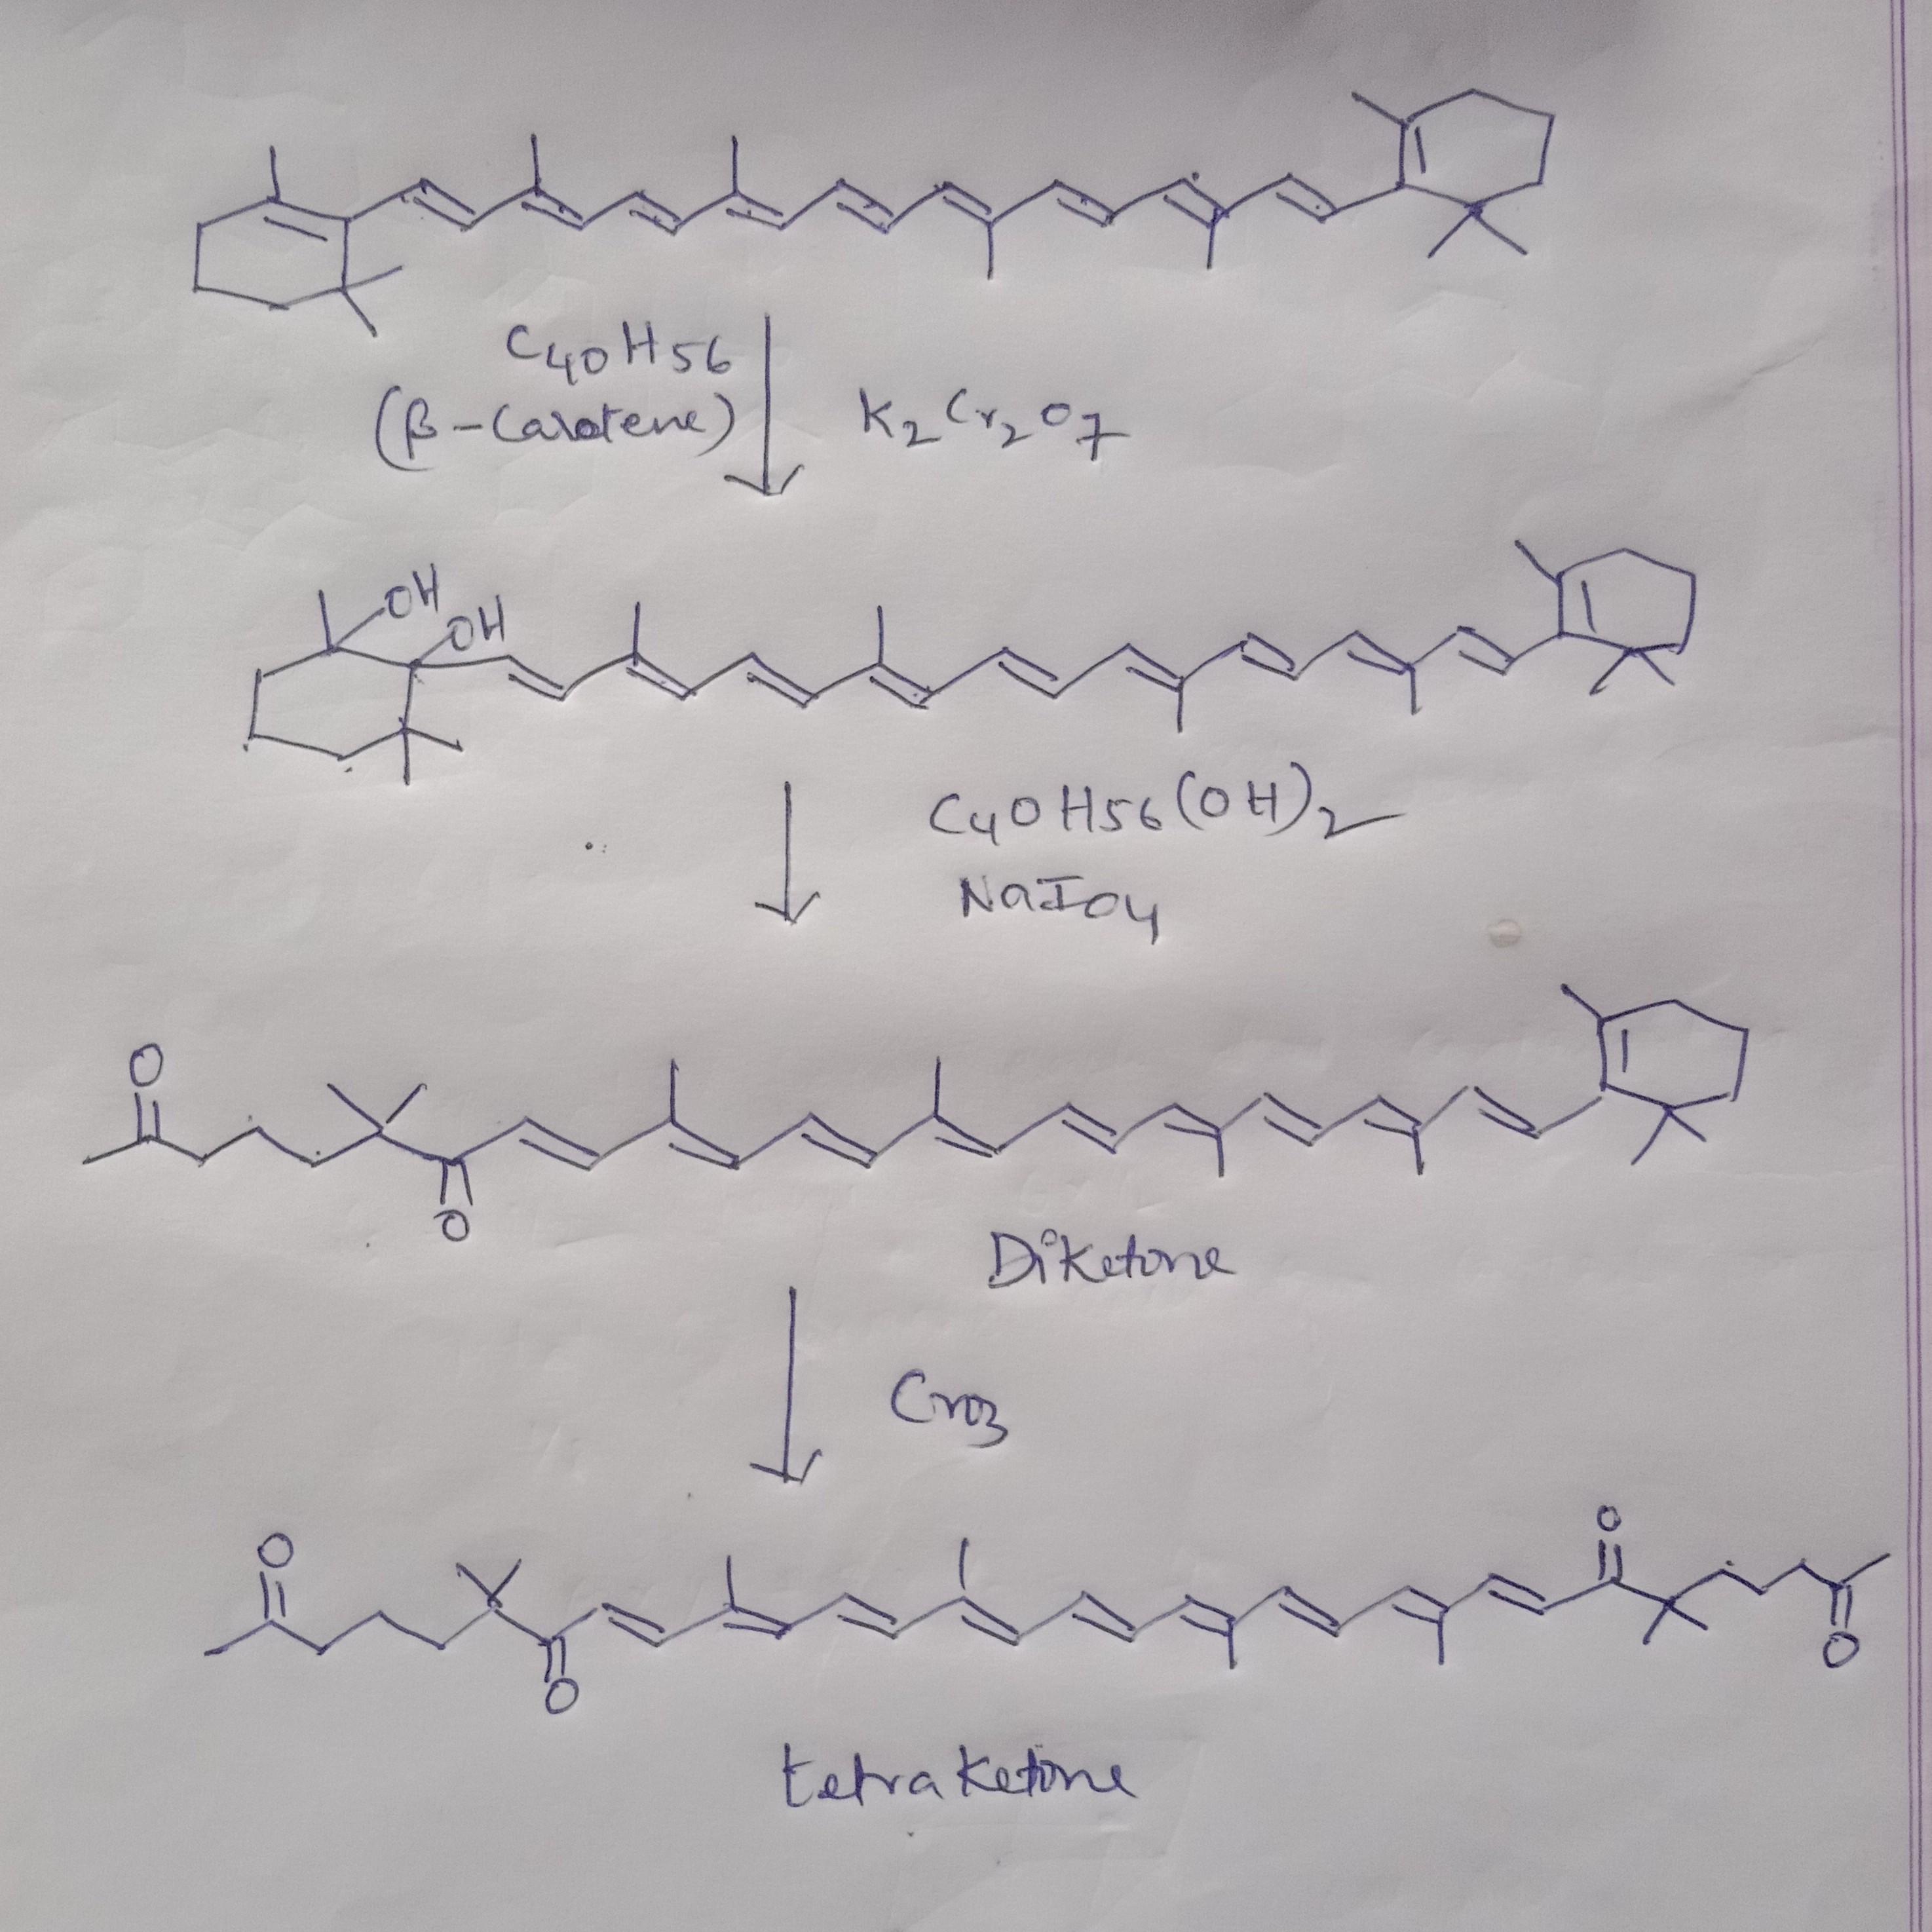 C40H56
(β-Carotene)
K2Cr2O7
OH
OH
C40H56(OH)2
NaIO4
O
O
Diketone
CrO3
O
O
O
O
tetraketone